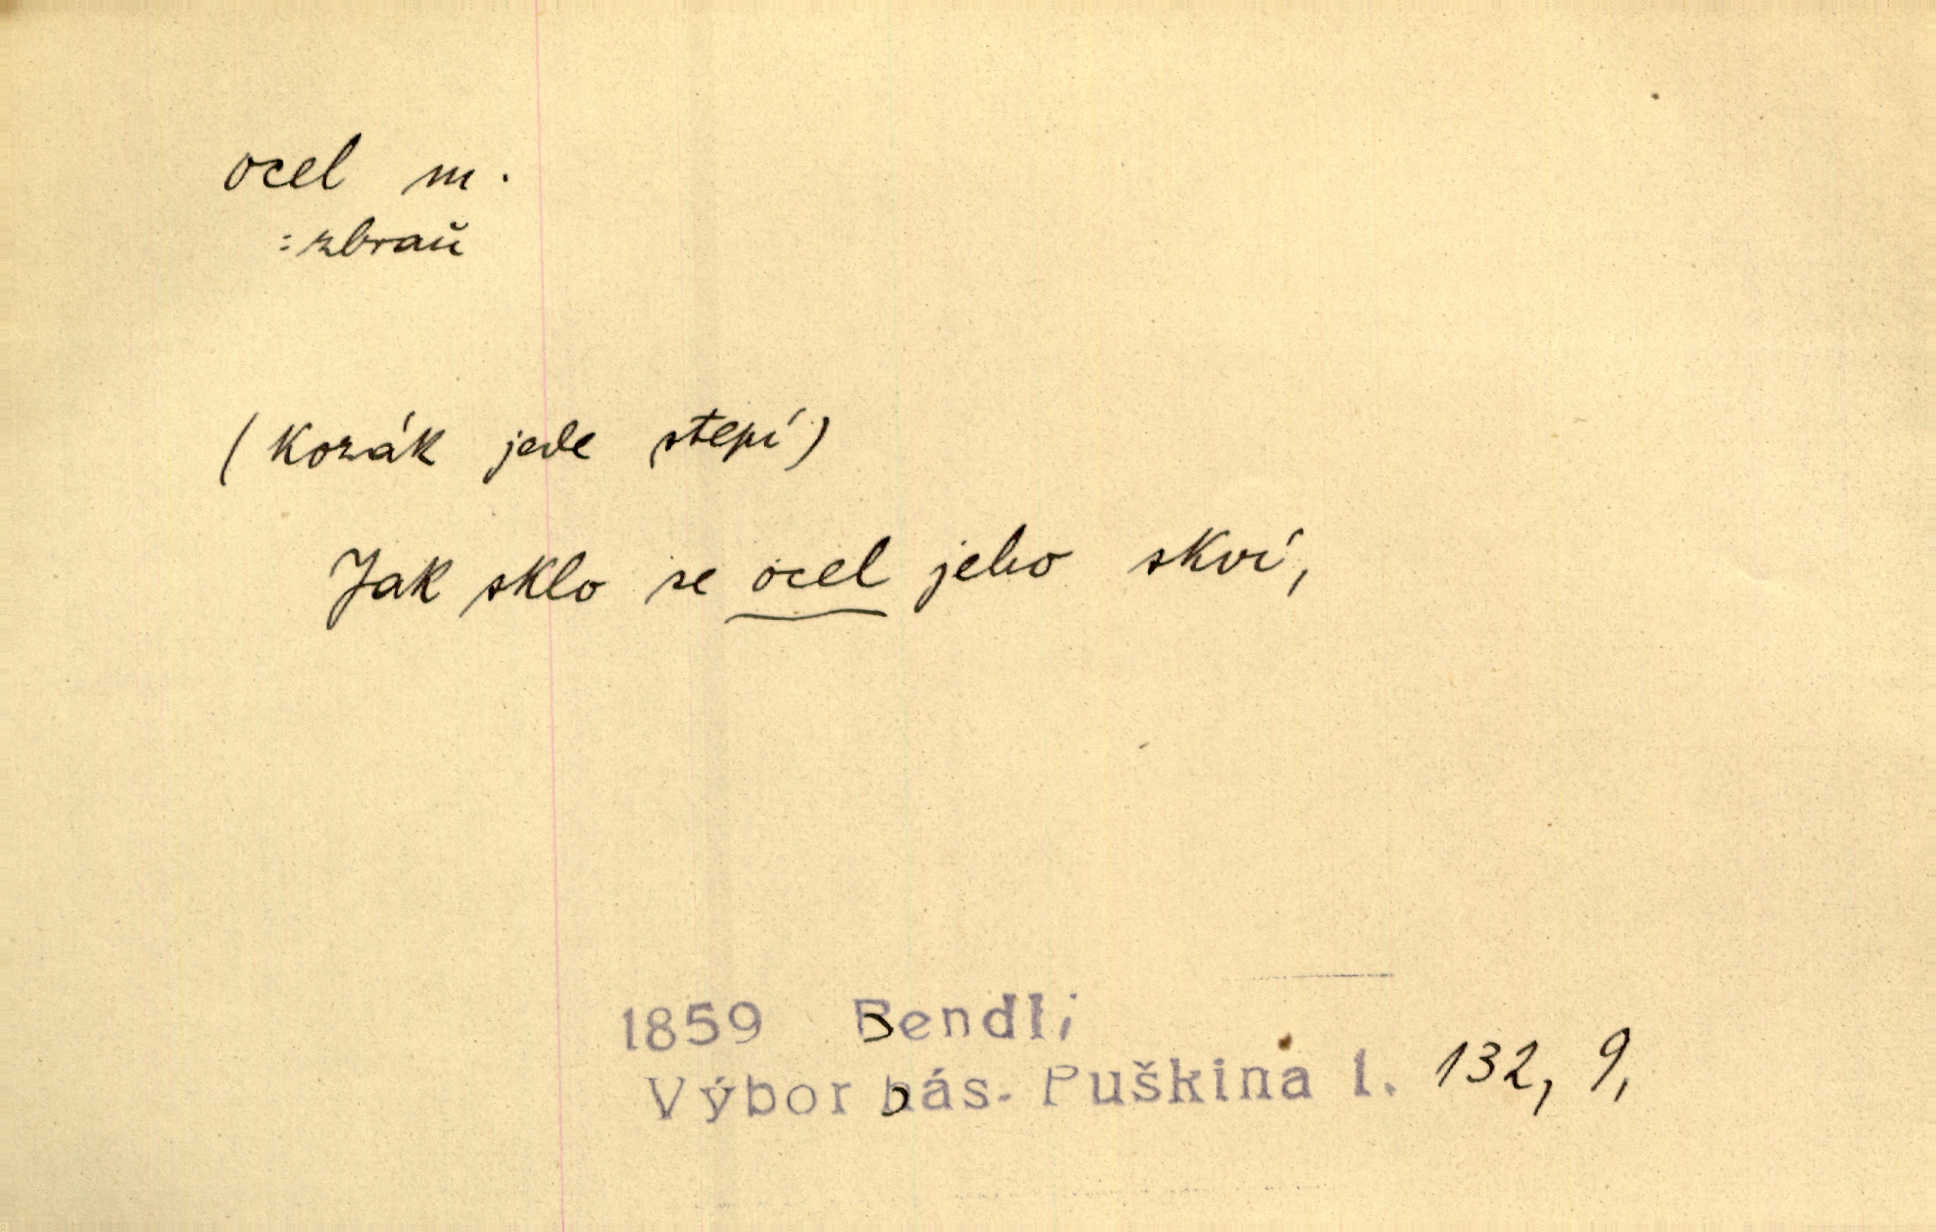 ocel m.
: zbraň
(Kozák jede stepí)
Jak sklo se ocel jeho skví,
1859 Bendl,
Výbor bás. Puškina 1. 132, 9,